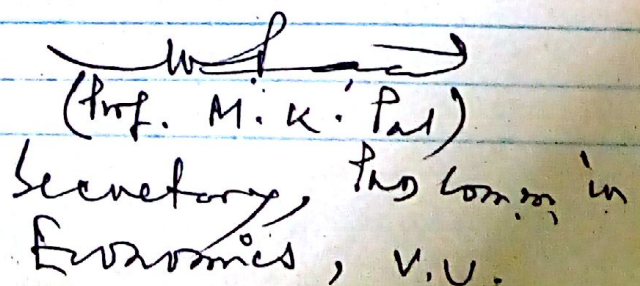 (Prof. M.K. Pal)
Secretary, PhD Comm, in
Economics, V.U.